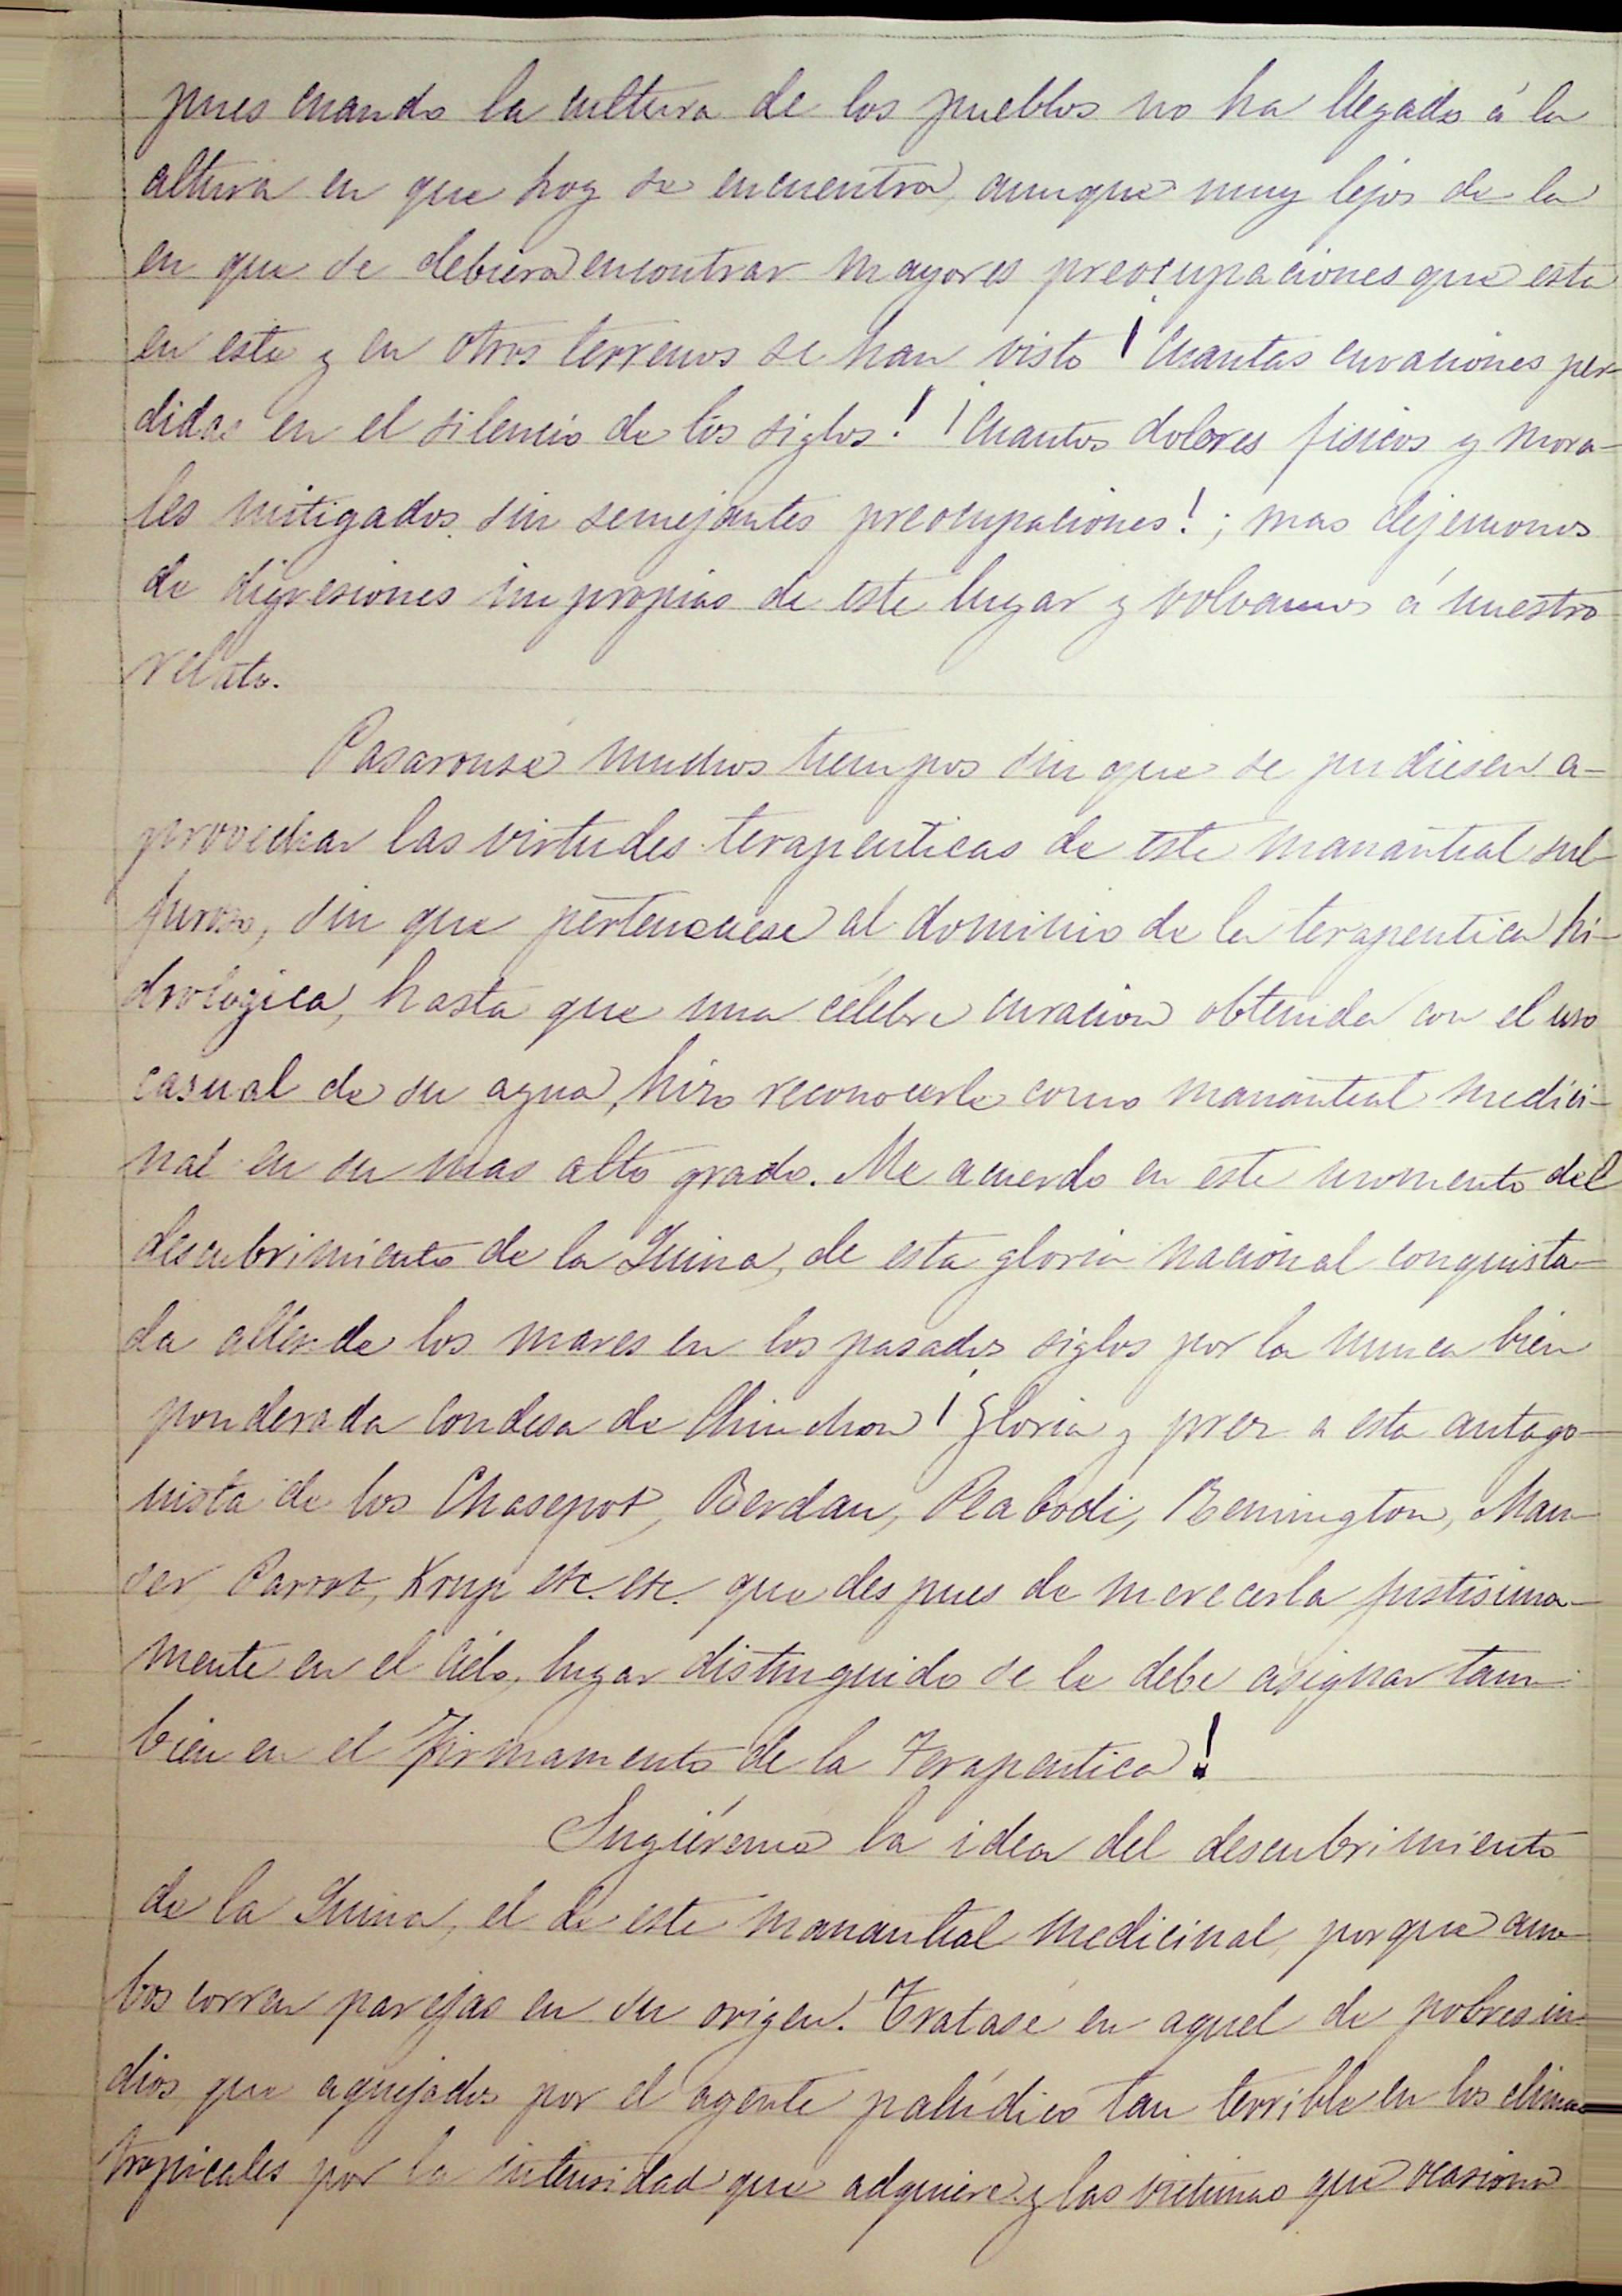 pues cuando la cultura de los pueblos no ha llegado á la
altura en que hoy se encuentra, aunque muy lejos de la
en que se debiera encontrar mayores preocupaciones que esta
en este y en otros terrenos se han visto ¡Cuantas curaciones per-
didas en el silencio de los siglos! ¡Cuantos dolores fisicos y mora-
les mitigados sin semejantes preocupaciones!; mas dejemonos
de digresiones impropias de este lugar y volvamos á nuestro
relato.
Pasaronse muchos tiempos sin que se pudiesen a-
provechar las virtudes terapeuticas de este manantial sul-
furoso, sin que perteneciese al dominio de la terapeutica hi-
drologica, hasta que una célebre curacion obtenida con el uso
casual de su agua, hizo reconocerle como manantial medici-
nal en su mas alto grado. Me acuerdo en este momento del
descubrimiento de la Quina, de esta gloria nacional conquista-
da allende los mares en los pasados siglos por la nunca bien
ponderada Condesa de Chinchon ¡Gloria y prez a esta antago-
nista de los Chasepot, Berdan, Peabodi, Remington, Mau-
ser, Parrot, Krup etc. etc. que despues de merecerla justisima-
mente en el Cielo, lugar distinguido se le debe asignar tam-
bien en el Firmamento de la Terapeutica!
Sugiéreme la idea del descubrimiento
de la Quina, el de este manantial medicinal, porque am-
bos corren parejas en su origen. Tratase en aquel de pobres in-
dios que aquejados por el agente palúdico tan terrible en los climas
tropicales por la intensidad que adquiere y las victimas que ocasiona